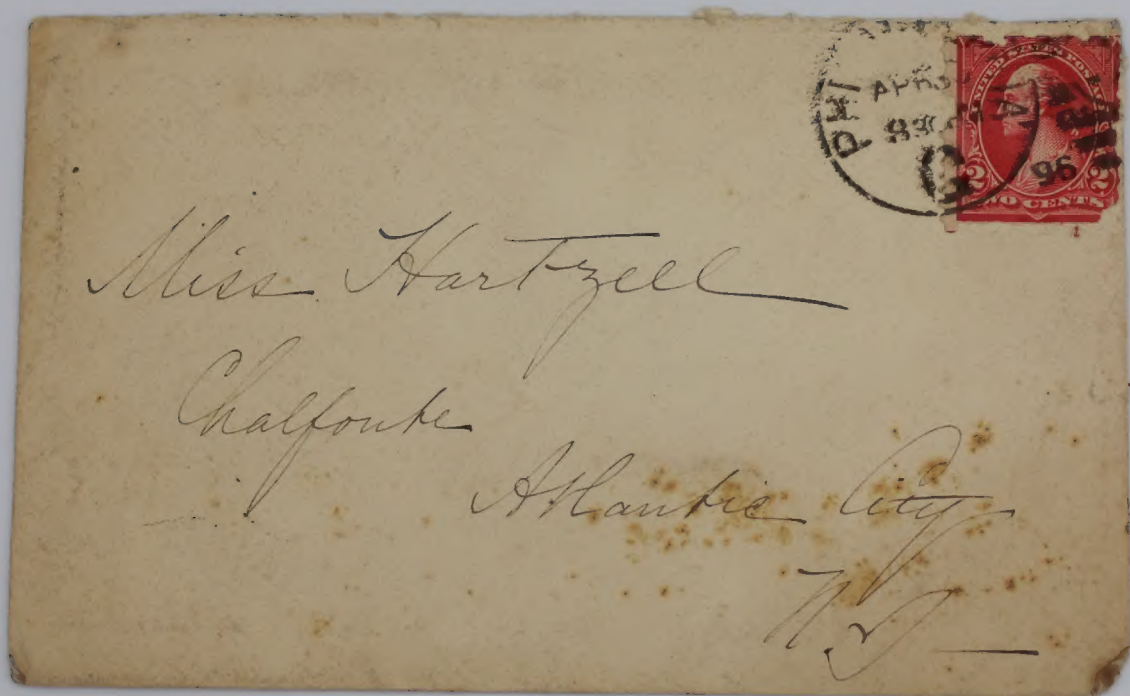 PHI
APR 3
8 30
96
UNITED STATES POSTAGE
2 2
TWO CENTS
Miss Hartzell
Chalfonte
Atlantic City
N.J.